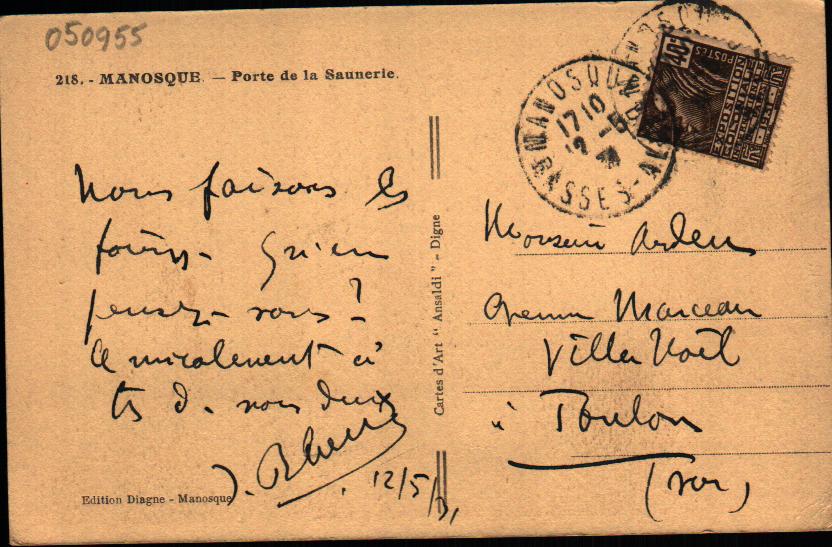 050955
218. - MANOSQUE. — Porte de la Saunerie.
Nous faisons les
Qu'en
pensez-vous ?
ts d. nous deux
12/5/31
Edition Diagne - Manosque
Cartes d'Art " Ansaldi " - Digne
MANOSQUE
17 10
12 -5
BASSES-ALPES
40c
POSTES
EXPOSITION
COLONIALE
INTERNATIONALE
Monsieur Arden
Avenue Marceau
Villa Noël
à Toulon
(Var)